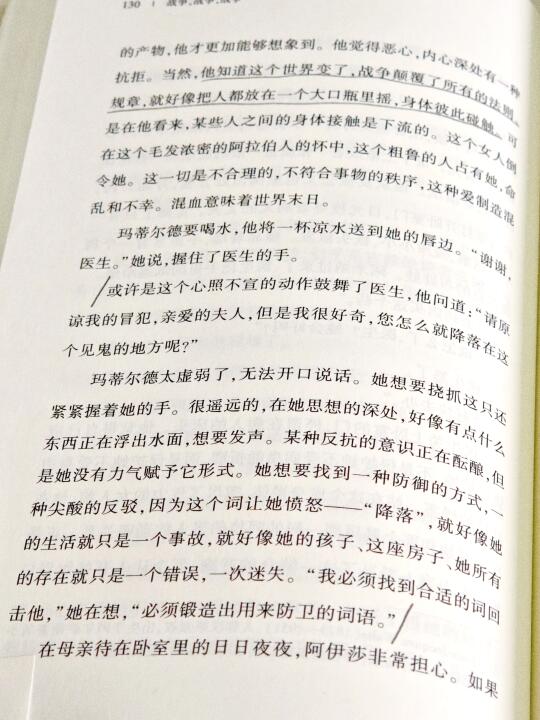 130 | 战争,战争,战争
的产物,他才更加能够想象到。他觉得恶心,内心深处有一种
抗拒。当然,他知道这个世界变了,战争颠覆了所有的法则、
规章,就好像把人都放在一个大口瓶里摇,身体彼此碰触。可
是在他看来,某些人之间的身体接触是下流的。这个女人倒
在这个毛发浓密的阿拉伯人的怀中,这个粗鲁的人占有她,命
令她。这一切是不合理的,不符合事物的秩序,这种爱制造混
乱和不幸。混血意味着世界末日。
玛蒂尔德要喝水,他将一杯凉水送到她的唇边。“谢谢,
医生。”她说,握住了医生的手。
或许是这个心照不宣的动作鼓舞了医生,他问道:“请原
谅我的冒犯,亲爱的夫人,但是我很好奇,您怎么就降落在这
个见鬼的地方呢?”
玛蒂尔德太虚弱了,无法开口说话。她想要挠抓这只还
紧紧握着她的手。很遥远的,在她思想的深处,好像有点什么
东西正在浮出水面,想要发声。某种反抗的意识正在酝酿,但
是她没有力气赋予它形式。她想要找到一种防御的方式,一
种尖酸的反驳,因为这个词让她愤怒——“降落”,就好像她
的生活就只是一个事故,就好像她的孩子、这座房子、她所有
的存在就只是一个错误,一次迷失。“我必须找到合适的词回
击他,”她在想,“必须锻造出用来防卫的词语。”
在母亲待在卧室里的日日夜夜,阿伊莎非常担心。如果